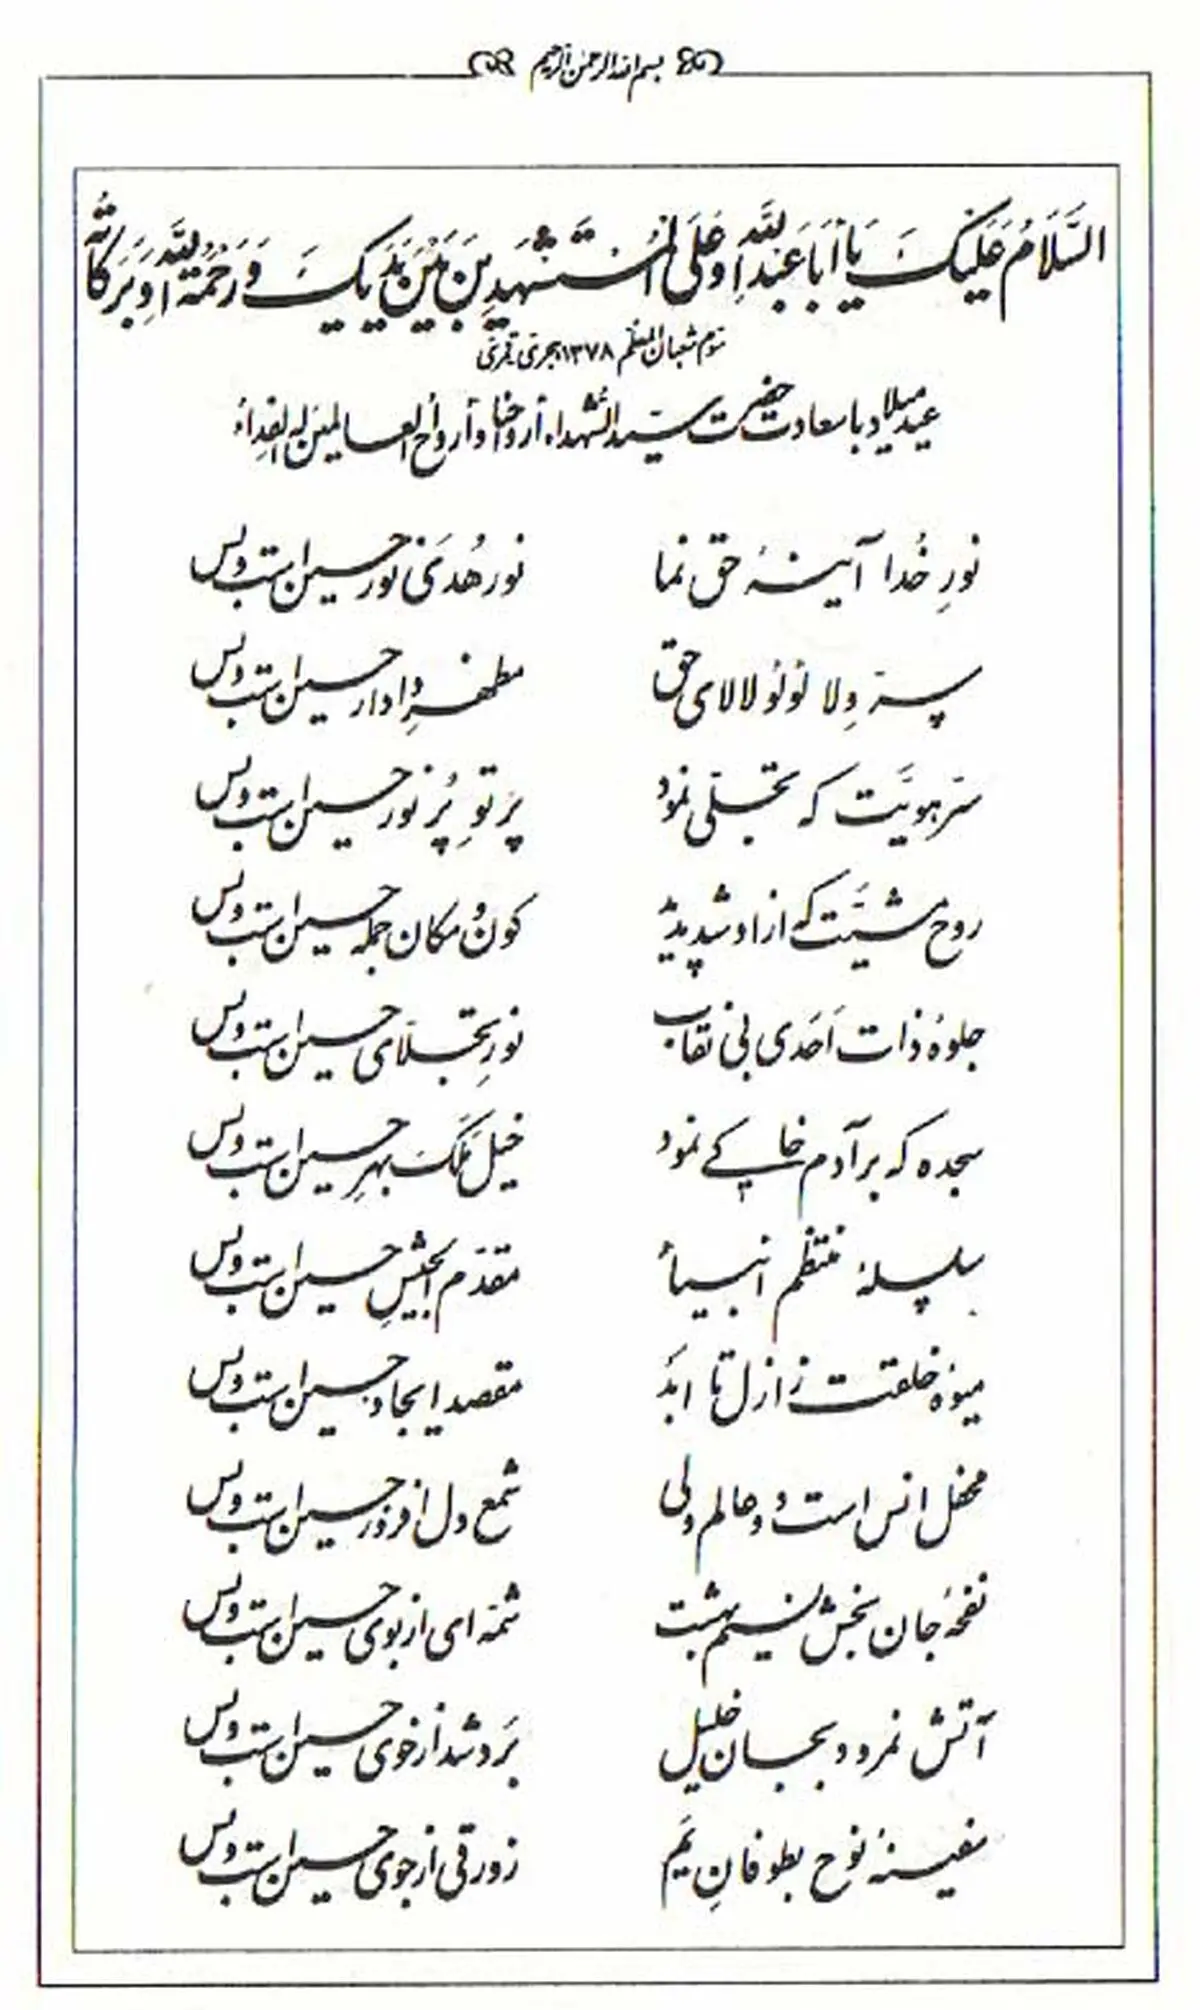 بسم الله الرحمن الرحیم
السَّلَامُ عَلَیْکَ یَا أَبَا عَبْدِ اللَّهِ وَ عَلَی الْمُسْتَشْهَدِینَ بَیْنَ یَدَیْکَ وَ رَحْمَةُ اللَّهِ وَ بَرَکَاتُهُ
سوم شعبان المعظم ۱۳۷۸ هجری قمری
عید میلاد با سعادت حضرت سید الشهداء أرواحنا و أرواح العالمین له الفداء
نورِ خُدا آینهٔ حق نما نور هُدیٰ نور حسین است و بس
سرّ وِلا لؤلؤ لالای حق مظهرِ دادار حسین است و بس
سرّ هویّت که تجلّی نمود پَرتوِ پُر نور حسین است و بس
روح مشیَّت که از او شد پدید کون و مکان جمله حسین است و بس
جلوهٔ ذات اَحَدی بی نقاب نورِ تجلّای حسین است و بس
سجده که بر آدم خاکی نمود خیل مَلَک بهرِ حسین است و بس
سلسلهٔ منتظم انبیاء مقدّم الجیشِ حسین است و بس
میوهٔ خلقت ز ازل تا ابد مقصد ایجاد حسین است و بس
محفل انس است دو عالم ولی شمع دل افروز حسین است و بس
نفحهٔ جان بخش نسیم بهشت شمّه ای از بوی حسین است و بس
آتش نمرود بجان خلیل بَرد شد از خوی حسین است و بس
سفینهٔ نوح بطوفانِ یَم زورقی از جوی حسین است و بس